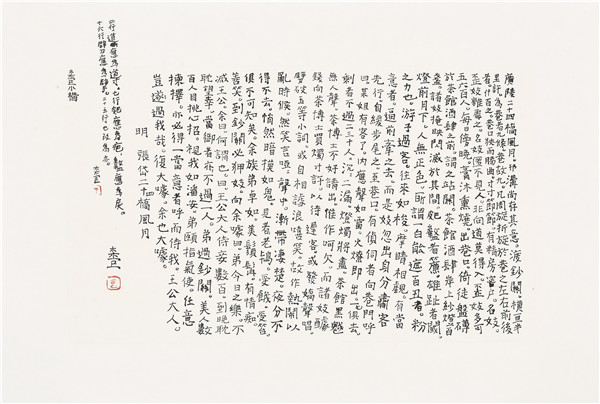 廣陵二十四橋風月邗溝尚存其意。渡鈔關橫亘半
里許。為巷者九條。巷故九。凡周旋折旋於巷之左右前後
者。什百之。巷口狹而腸曲。寸寸節節。有精房密戶。名妓。
歪妓雜處之。名妓匿不見人。非向道莫得入。歪妓多可
五六百人。每日傍晚。膏沐熏燒。出巷口。倚徙盤礴
於茶館酒肆之前。謂之站關。茶館酒肆岸上紗燈百
盞。諸妓掩映閃滅於其間。疤戾者簾。雄趾者閾。
燈前月下。人無正色。所謂一白能遮百丑者。粉
之力也。游子過客。往來如梭。摩睛相覷。有當
意者。逼前牽之去。而是妓忽出身分。肅客
先行。自緩步尾之。至巷口。有偵伺者。向巷門呼
曰。某姐有客了。內應聲如雷。火燎即出。一俱去。
剩者不過二三十人。沉沉二漏。燈燭將盡。茶館黑魆
無人聲。茶博士不好請出。惟作呵欠。而諸妓醵
錢向茶博士買燭寸許。以待遲客。或發嬌聲。唱
擘破玉等小詞。或自相謔浪嘻笑。故作熱鬧。以
亂時候。然笑言啞啞聲中。漸帶凄楚。夜分不
得不去。悄然暗摸如鬼。見老鴇。受餓受笞
俱不可知矣。余族弟卓如。美鬚髯。有情痴。
善笑。到鈔關必狎妓。向余噱曰。弟今日之樂。不
減王公。余曰。何謂也。曰。王公大人侍妾數百。到晚耽
耽望幸。當御者不過一人。弟過鈔關。美人數
百人。目挑心招。視我如潘安。弟頤指氣使。任意
揀擇。亦必得一當意者呼而侍我。王公大人。
豈遂過我哉。復大噱。余也大噱。
明 張岱二十四橋風月